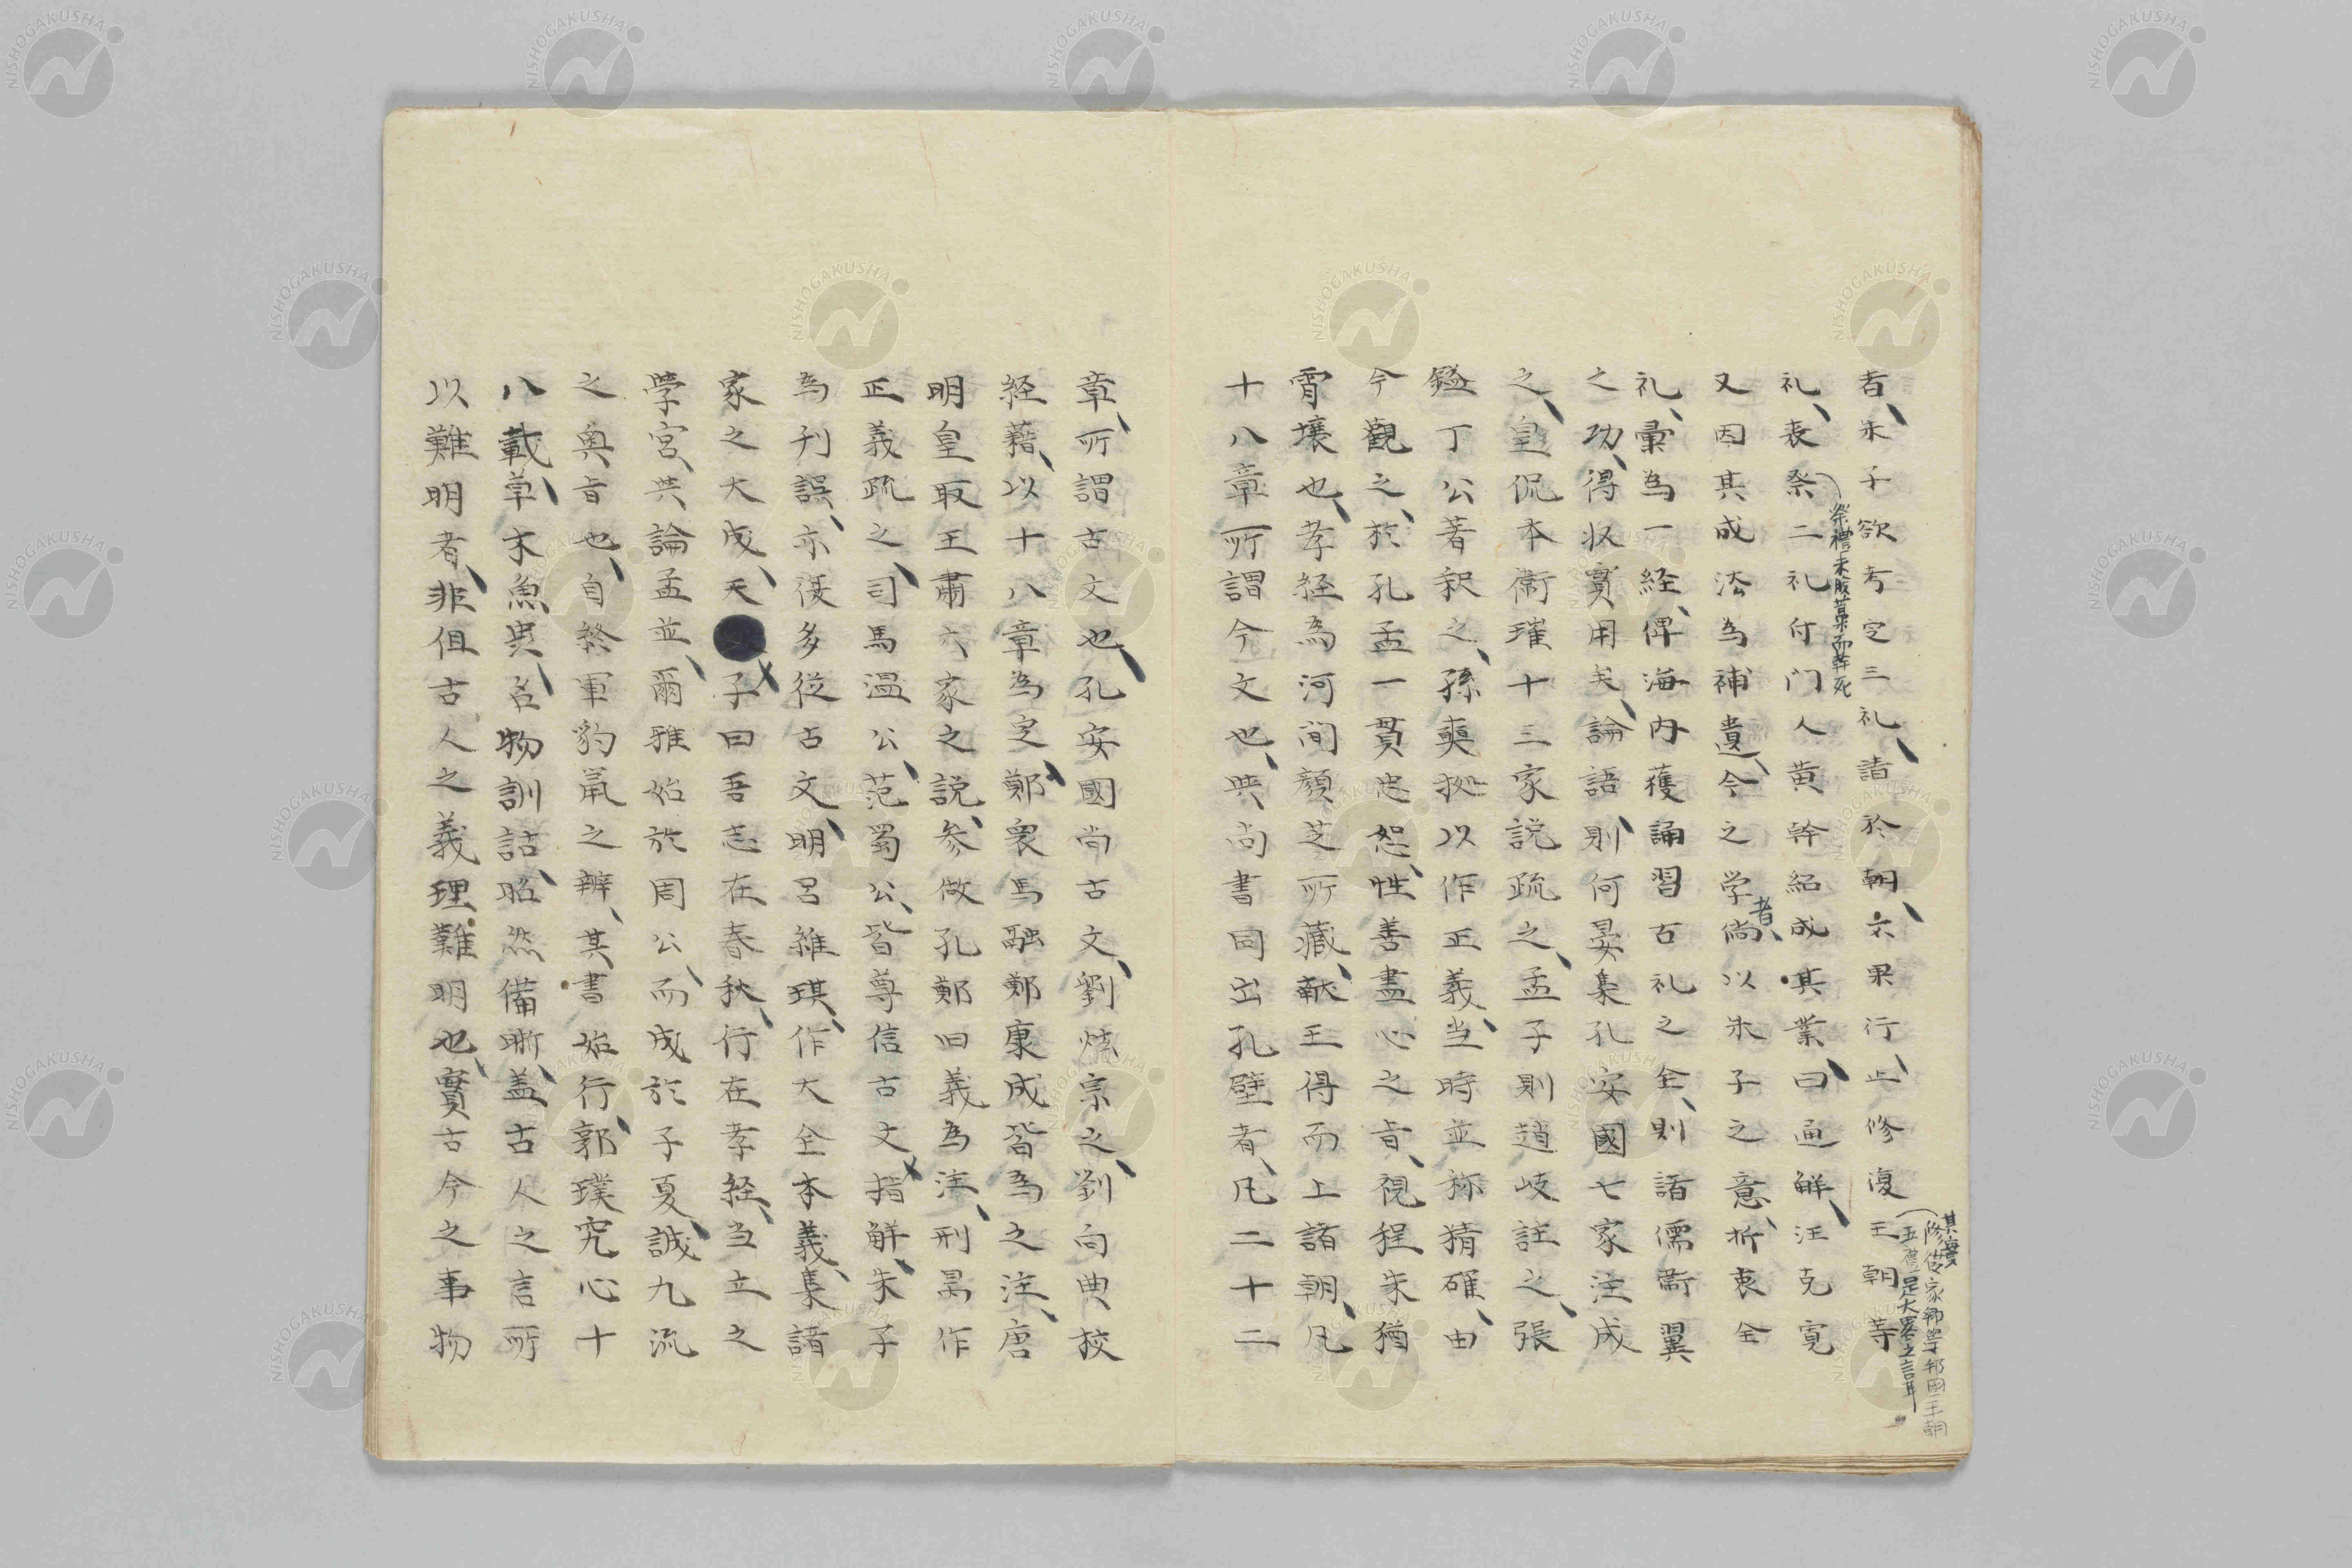 者朱子欲考定三礼請於朝不果行止修復王朝等
其實
修俊家郷学邦国王朝
五禮是大畧之言耳
礼喪祭二礼付门人黄幹紹成其業曰通觧汪克寛
祭禮未脱藁而幹死
又因其成法為補遺今之学尚以朱子之意折衷全
者
礼彙為一経俾海内獲誦習古礼之全則諸儒衛翼
之功得収實用矣論語則何晏集孔安國七家注成
之皇侃本衛瓘十三家説疏之孟子則趙岐註之張
鎰丁公著釈之孫奭拠以作正義当時並称精確由
今觀之於孔孟一貫忠恕性善盡心之旨視程朱猶
霄壌也孝経為河间顔芝所藏献王得而上諸朝凡
十八章所謂今文也與尚書同出孔壁者凡二十二
章所謂古文也孔安國尚古文劉炫宗之劉向典校
経藉以十八章為定鄭衆馬融鄭康成皆為之注唐
明皇取王肅六家之説参倣孔鄭旧義為注刑昺作
正義疏之司馬温公范蜀公皆尊信古文指觧朱子
為刊誤亦従多従古文明呂維祺作大全本義集諸
家之大成夫子曰吾志在春秋行在孝経当立之
學宮與論孟並爾雅始於周公而成於子夏誠九流
之奥旨也自終軍豹鼠之辨其書始行郭璞究心十
八載草木魚虫名物訓詁昭然備晰盖古人之言所
以難明者非但古人之義理難明也實古今之事物